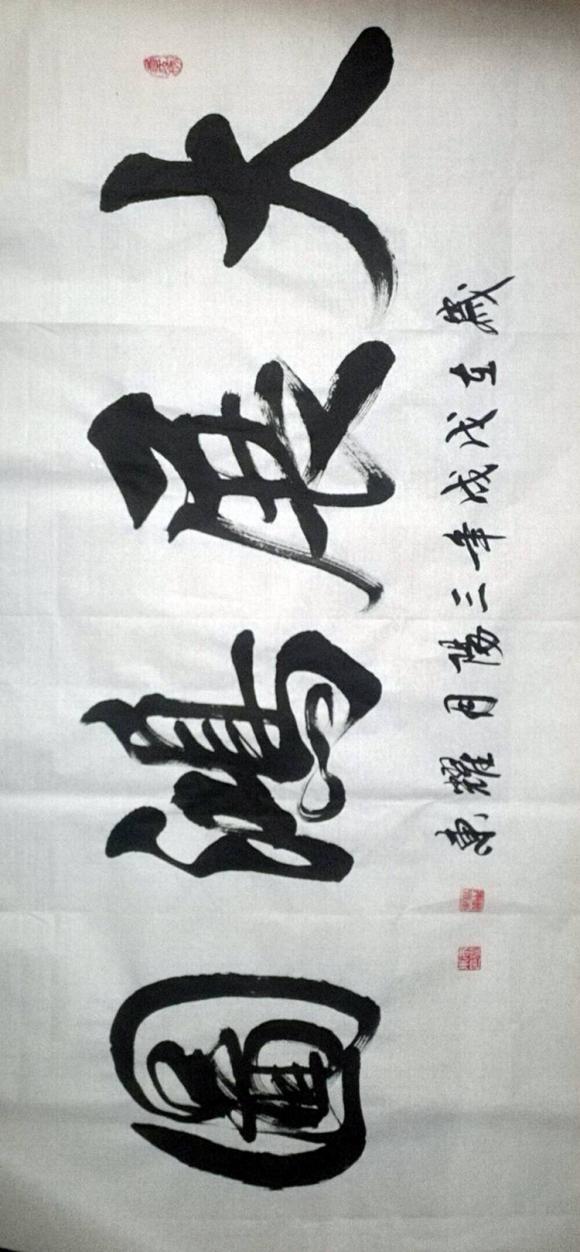 大展鴻圖
歲在戊戌年三陽月耀東